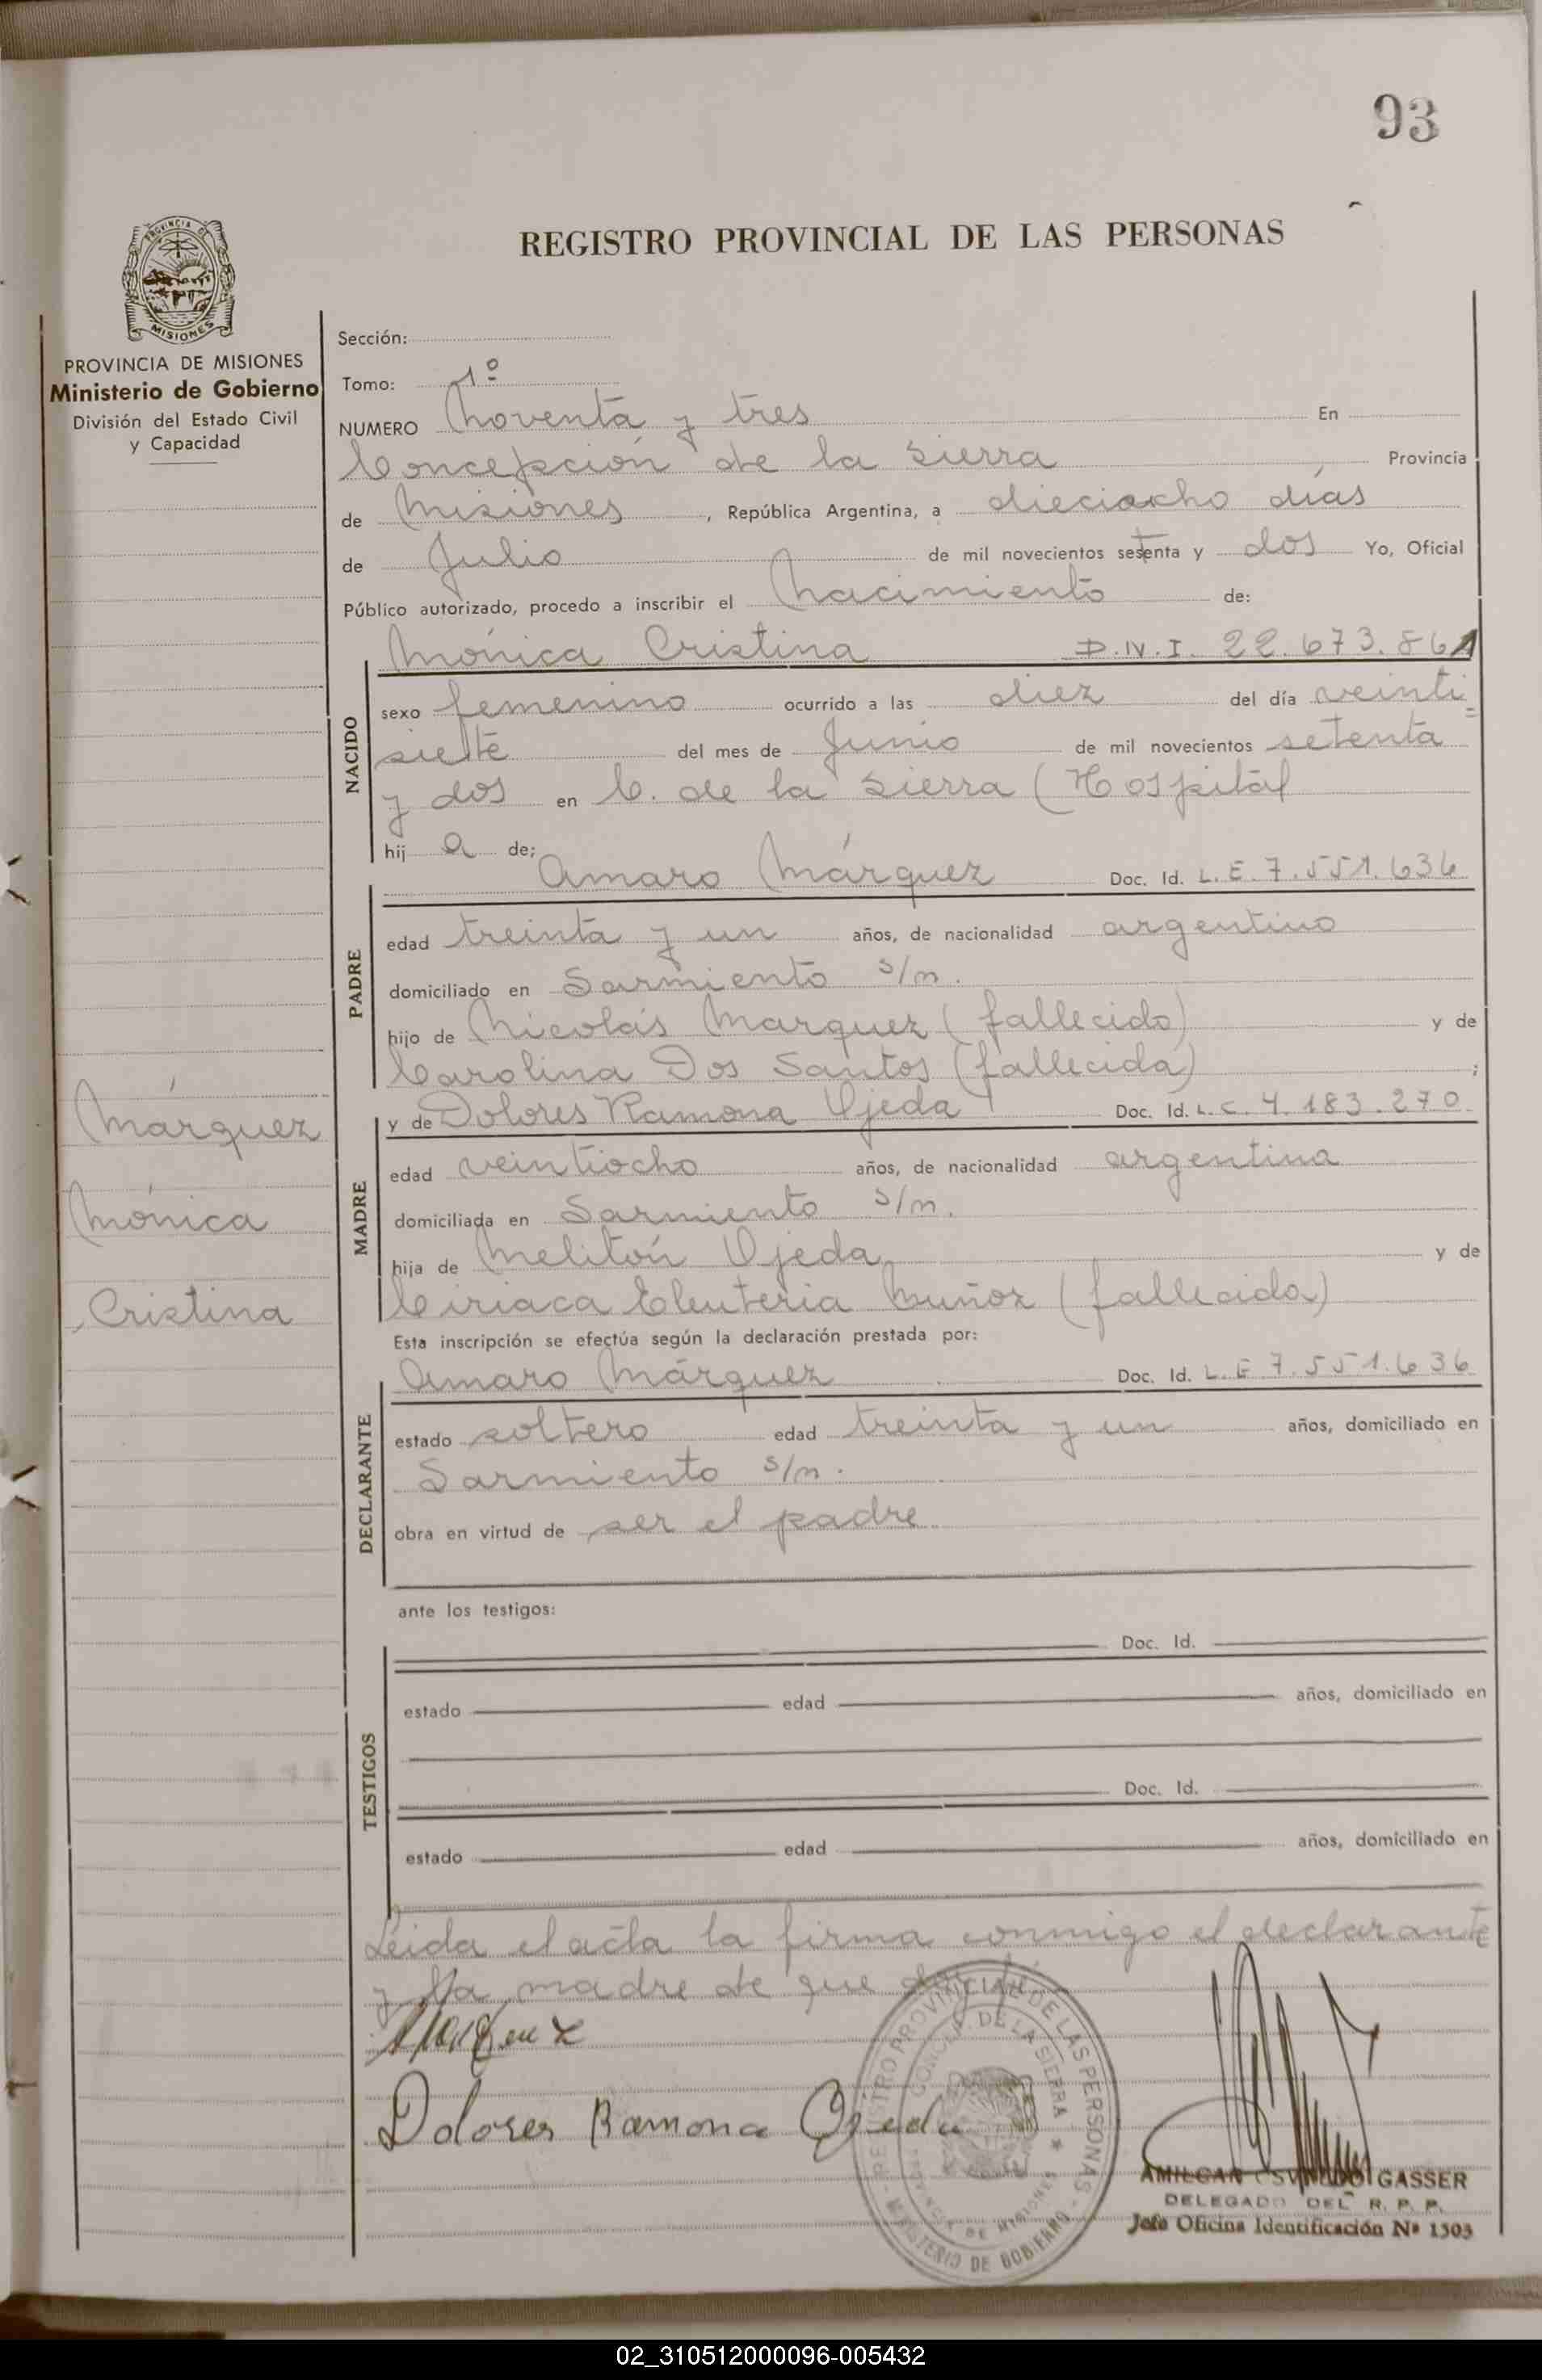 93
REGISTRO PROVINCIAL DE LAS PERSONAS
PROVINCIA DE MISIONES
Ministerio de Gobierno
División del Estado Civil
y Capacidad
Sección:
Tomo: 1º
NUMERO Noventa y tres En
Concepción de la Sierra Provincia
de Misiones, República Argentina, a dieciocho días
de Julio de mil novecientos setenta y dos Yo, Oficial
Público autorizado, procedo a inscribir el Nacimiento de:
Mónica Cristina D.N.I. 22.673.861
NACIDO
sexo femenino ocurrido a las diez del día veinti
siete del mes de Junio de mil novecientos setenta
y dos en C. de la Sierra (Hospital
hij a de;
PADRE
Amaro Márquez Doc. Id. L.E. 7.551.636
edad treinta y un años, de nacionalidad argentino
domiciliado en Sarmiento s/n.
hijo de Nicolás Marquez (fallecido) y de
Carolina Dos Santos (fallecida) ;
MADRE
y de Dolores Ramona Ojeda Doc. Id. L.C. 4.183.270
edad veintiocho años, de nacionalidad argentina
domiciliada en Sarmiento s/n.
hija de Melitón Ojeda y de
Ciriaca Eleuteria Muñoz (fallecida)
Márquez
Mónica
Cristina
Esta inscripción se efectúa según la declaración prestada por:
DECLARANTE
Amaro Márquez Doc. Id. L.E 7.551.636
estado soltero edad treinta y un años, domiciliado en
Sarmiento s/n.
obra en virtud de ser el padre
ante los testigos:
TESTIGOS
Doc. Id.
estado edad años, domiciliado en
Doc. Id.
estado edad años, domiciliado en
Leida el acta la firma conmigo el declarante
y la madre de que doy fé
Marquez
Dolores Ramona Ojeda
REGISTRO PROVINCIAL DE LAS PERSONAS
CONCEP. DE LA SIERRA
PROVINCIA DE MISIONES
MINISTERIO DE GOBIERNO
AMILCAR OSVALDO GASSER
DELEGADO DEL R. P. P.
Jefe Oficina Identificación Nº 1303
02_310512000096-005432